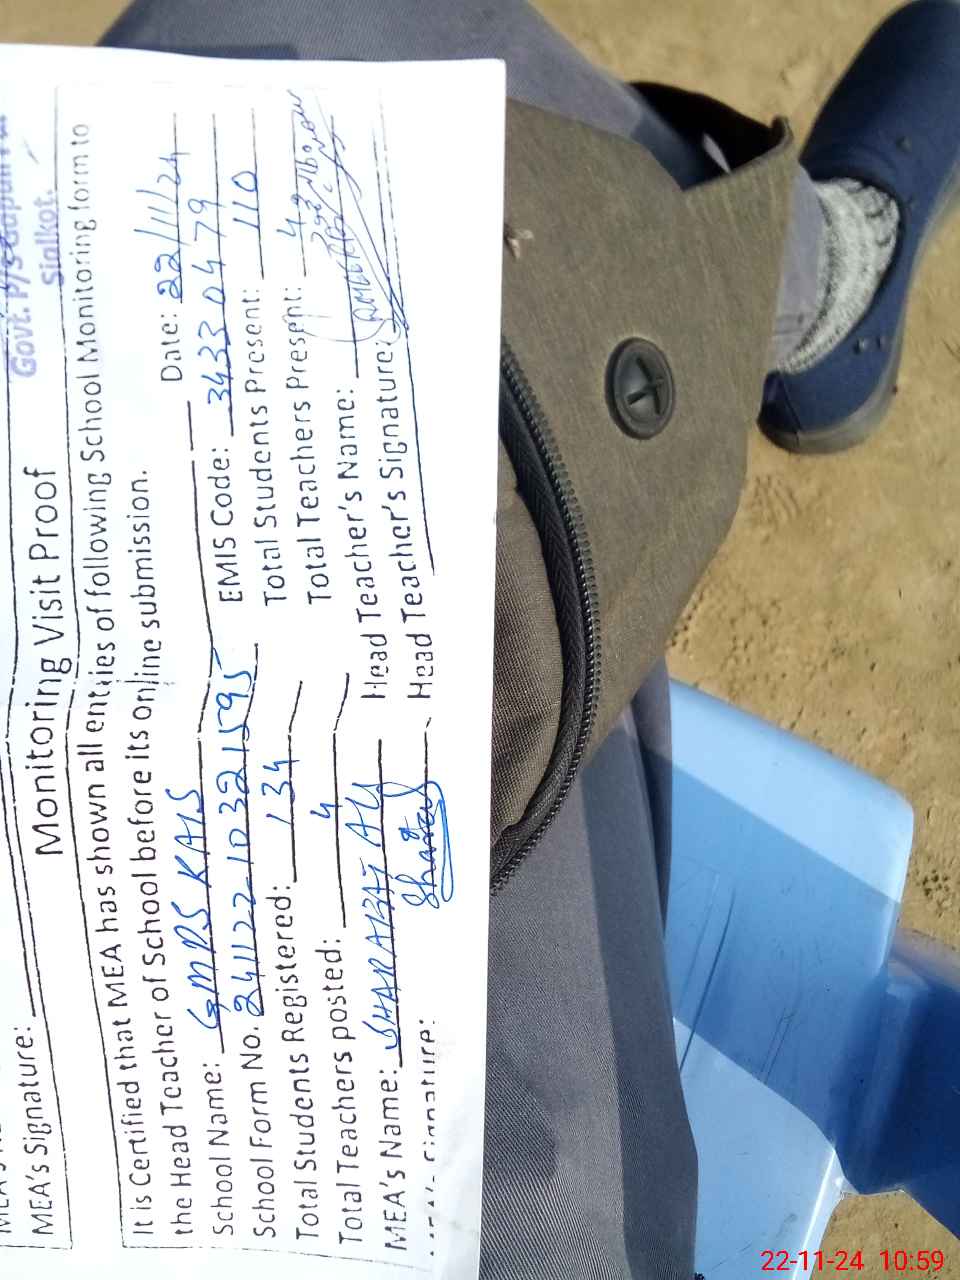 MEA's Signature:
Govt. P/S
Sialkot.
Monitoring Visit Proof
It is Certified that MEA has shown all entries of following School Monitoring form to
the Head Teacher of School before its online submission.
Date: 22/11/24
School Name: GMPS KAIS
EMIS Code: 34330479
School Form No. 241122-10321595
Total Students Present: 110
Total Students Registered: 134
Total Teachers Present: 4
Total Teachers posted: 4
Head Teacher's Name:
MEA's Name: SHARAFAT ALI
Head Teacher's Signature:
MEA's Signature:
22-11-24 10:59